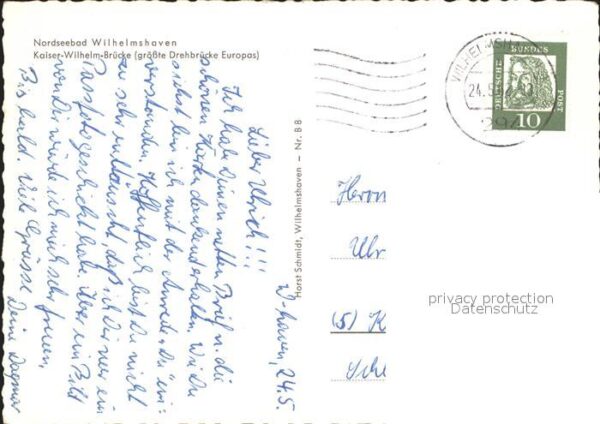 Nordseebad Wilhelmshaven
Kaiser-Wilhelm-Brücke (größte Drehbrücke Europas)
W-haven, 24.5.
Lieber Ulrich!!!
Ich habe Deinen netten Brief u. die
schönen Karten dankend erhalten. Wie Du
siehst bin ich mit der Anrede „Du" ein-
verstanden. Hoffentlich bist Du nicht
zu sehr enttäuscht, daß ich Dir nur ein
Passfoto geschickt habe. Über ein Bild
von Dir würde ich mich sehr freuen.
Bis bald. Viele Grüsse Deine Dagmar
Horst Schmidt, Wilhelmshaven – Nr. BB
WILHELMSH
24.5.
DEUTSCHE BUNDESPOST
10
Herrn
Ulr
(5) K
Sche
privacy protection
Datenschutz